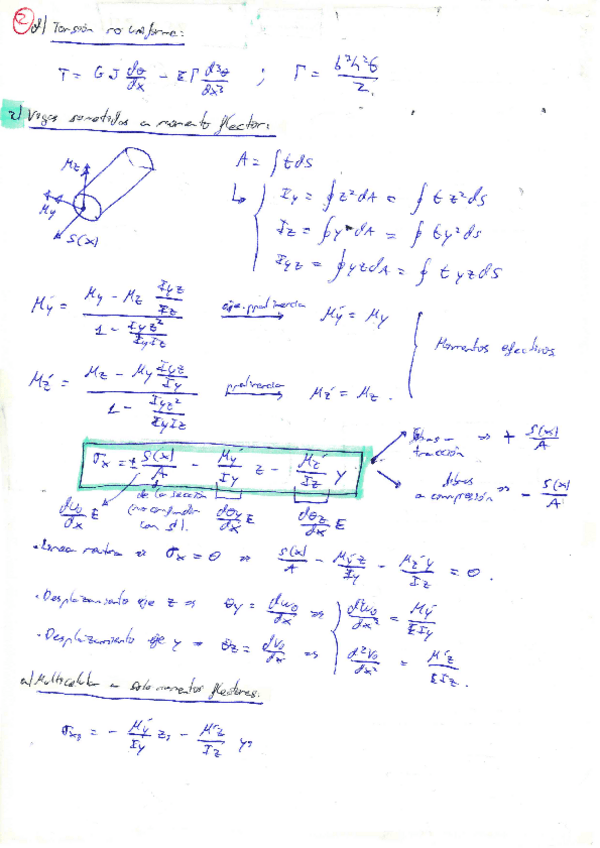 2
d) Torsión no uniforme:
T = GJ dθ/dx - EΓ d³θ/dx³ ; Γ = b²h²t/2.
2) Vigas sometidas a momento flector:
Mz
My
S(x)
A = ∫tds
Iy = ∮z²dA = ∮ t z²ds
Iz = ∮y²dA = ∮ t y²ds
Iyz = ∮yzdA = ∮ t yzds
M'y = (My - Mz Iyz/Iz) / (1 - Iyz²/IyIz) eje ppal inercia → M'y = My
Momentos efectivos
M'z = (Mz - My Iyz/Iy) / (1 - Iyz²/IyIz) ppal inercia → M'z = Mz.
σx = ± S(x)/A - M'y/Iy z - M'z/Iz y
tracción ⇒ + S(x)/A
a compresión ⇒ - S(x)/A
de la sección
(no confundir
con st).
du0/dx E
dθy/dx E
dθz/dx E
· Línea neutra ⇒ σx = 0 ⇒ S(x)/A - M'y z/Iy - M'z y/Iz = 0.
· Desplazamiento eje z ⇒ θy = dw0/dx ⇒ d²w0/dx² = M'y/EIy
· Desplazamiento eje y ⇒ θz = dv0/dx ⇒ d²v0/dx² = M'z/EIz.
a) Multicelular a solo momentos flectores:
σx, = - M'y/Iy z, - M'z/Iz y,